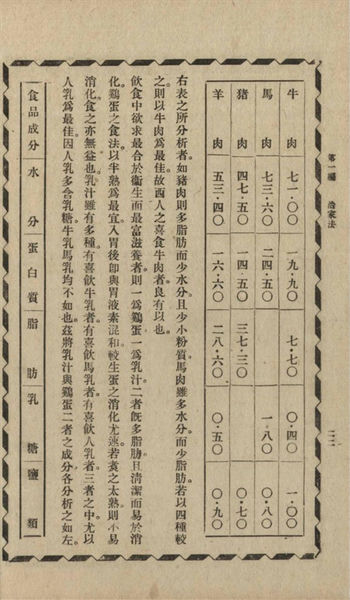 第一編 治家法
二二
牛肉 七一·〇〇 一九·九〇 七·七〇 〇·四〇 一·〇〇
馬肉 七三·六〇 二四·五〇 一·八〇 〇·八〇
猪肉 四七·五〇 一四·五〇 三七·三〇 〇·七〇
羊肉 五三·四〇 一六·六〇 二八·六〇 〇·五〇 〇·九〇
右表之所分析者。如豬肉則多脂肪而少水分。且少小粉質。馬肉雖多水分。而少脂肪。若以四種較
之。則以牛肉爲最佳。故西人之喜食牛肉者。良有以也。
飲食中欲求最合於衞生而最富滋養者。則一爲鷄蛋。一爲乳汁。二者旣多脂肪。且清潔而易於消
化。鷄蛋之食法。以半熟爲最宜。入胃後卽與胃液素混和。較生蛋之消化尤速。若煑之太熟。則不易
消化。食之亦無益也。乳汁雖有多種。有喜飲牛乳者。有喜飲馬乳者。有喜飲人乳者。三者之中。尤以
人乳爲最佳。因人乳多含乳糖。牛乳馬乳均不如也。茲將乳汁與鷄蛋二者之成分。各分析之如左。
食品成分 水分 蛋白質 脂肪 乳糖 鹽類